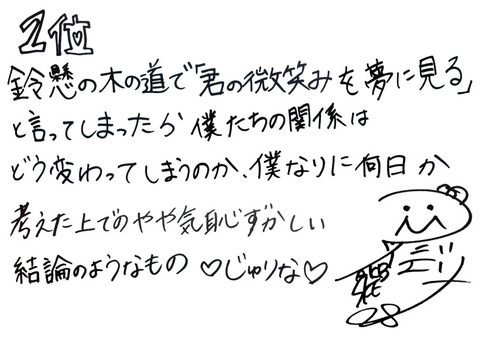 2位
鈴懸の木の道で「君の微笑みを夢に見る」
と言ってしまったら僕たちの関係は
どう変わってしまうのか、僕なりに何日か
考えた上でのやや気恥ずかしい
結論のようなもの ♡じゅりな♡